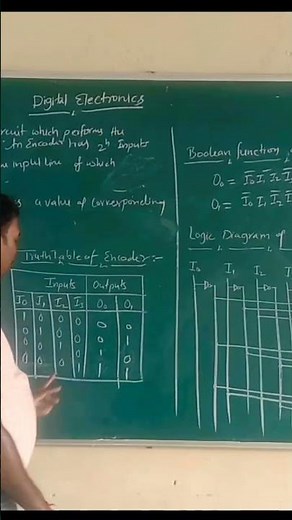 Digital Electronics
circuit which performs the
An Encoder has 2ⁿ Inputs
input line of which
a value of corresponding
Truth Table of Encoder:-
Inputs Outputs
I0 I1 I2 I3 O0 O1
1 0 0 0 0 0
0 1 0 0 0 1
0 0 1 0 1 0
0 0 0 1 1 1
Boolean function
O₀ = I̅0 I̅1 I2 I̅
O₁ = I̅0 I1 I̅2 I̅
Logic Diagram of
I0 I1 I2